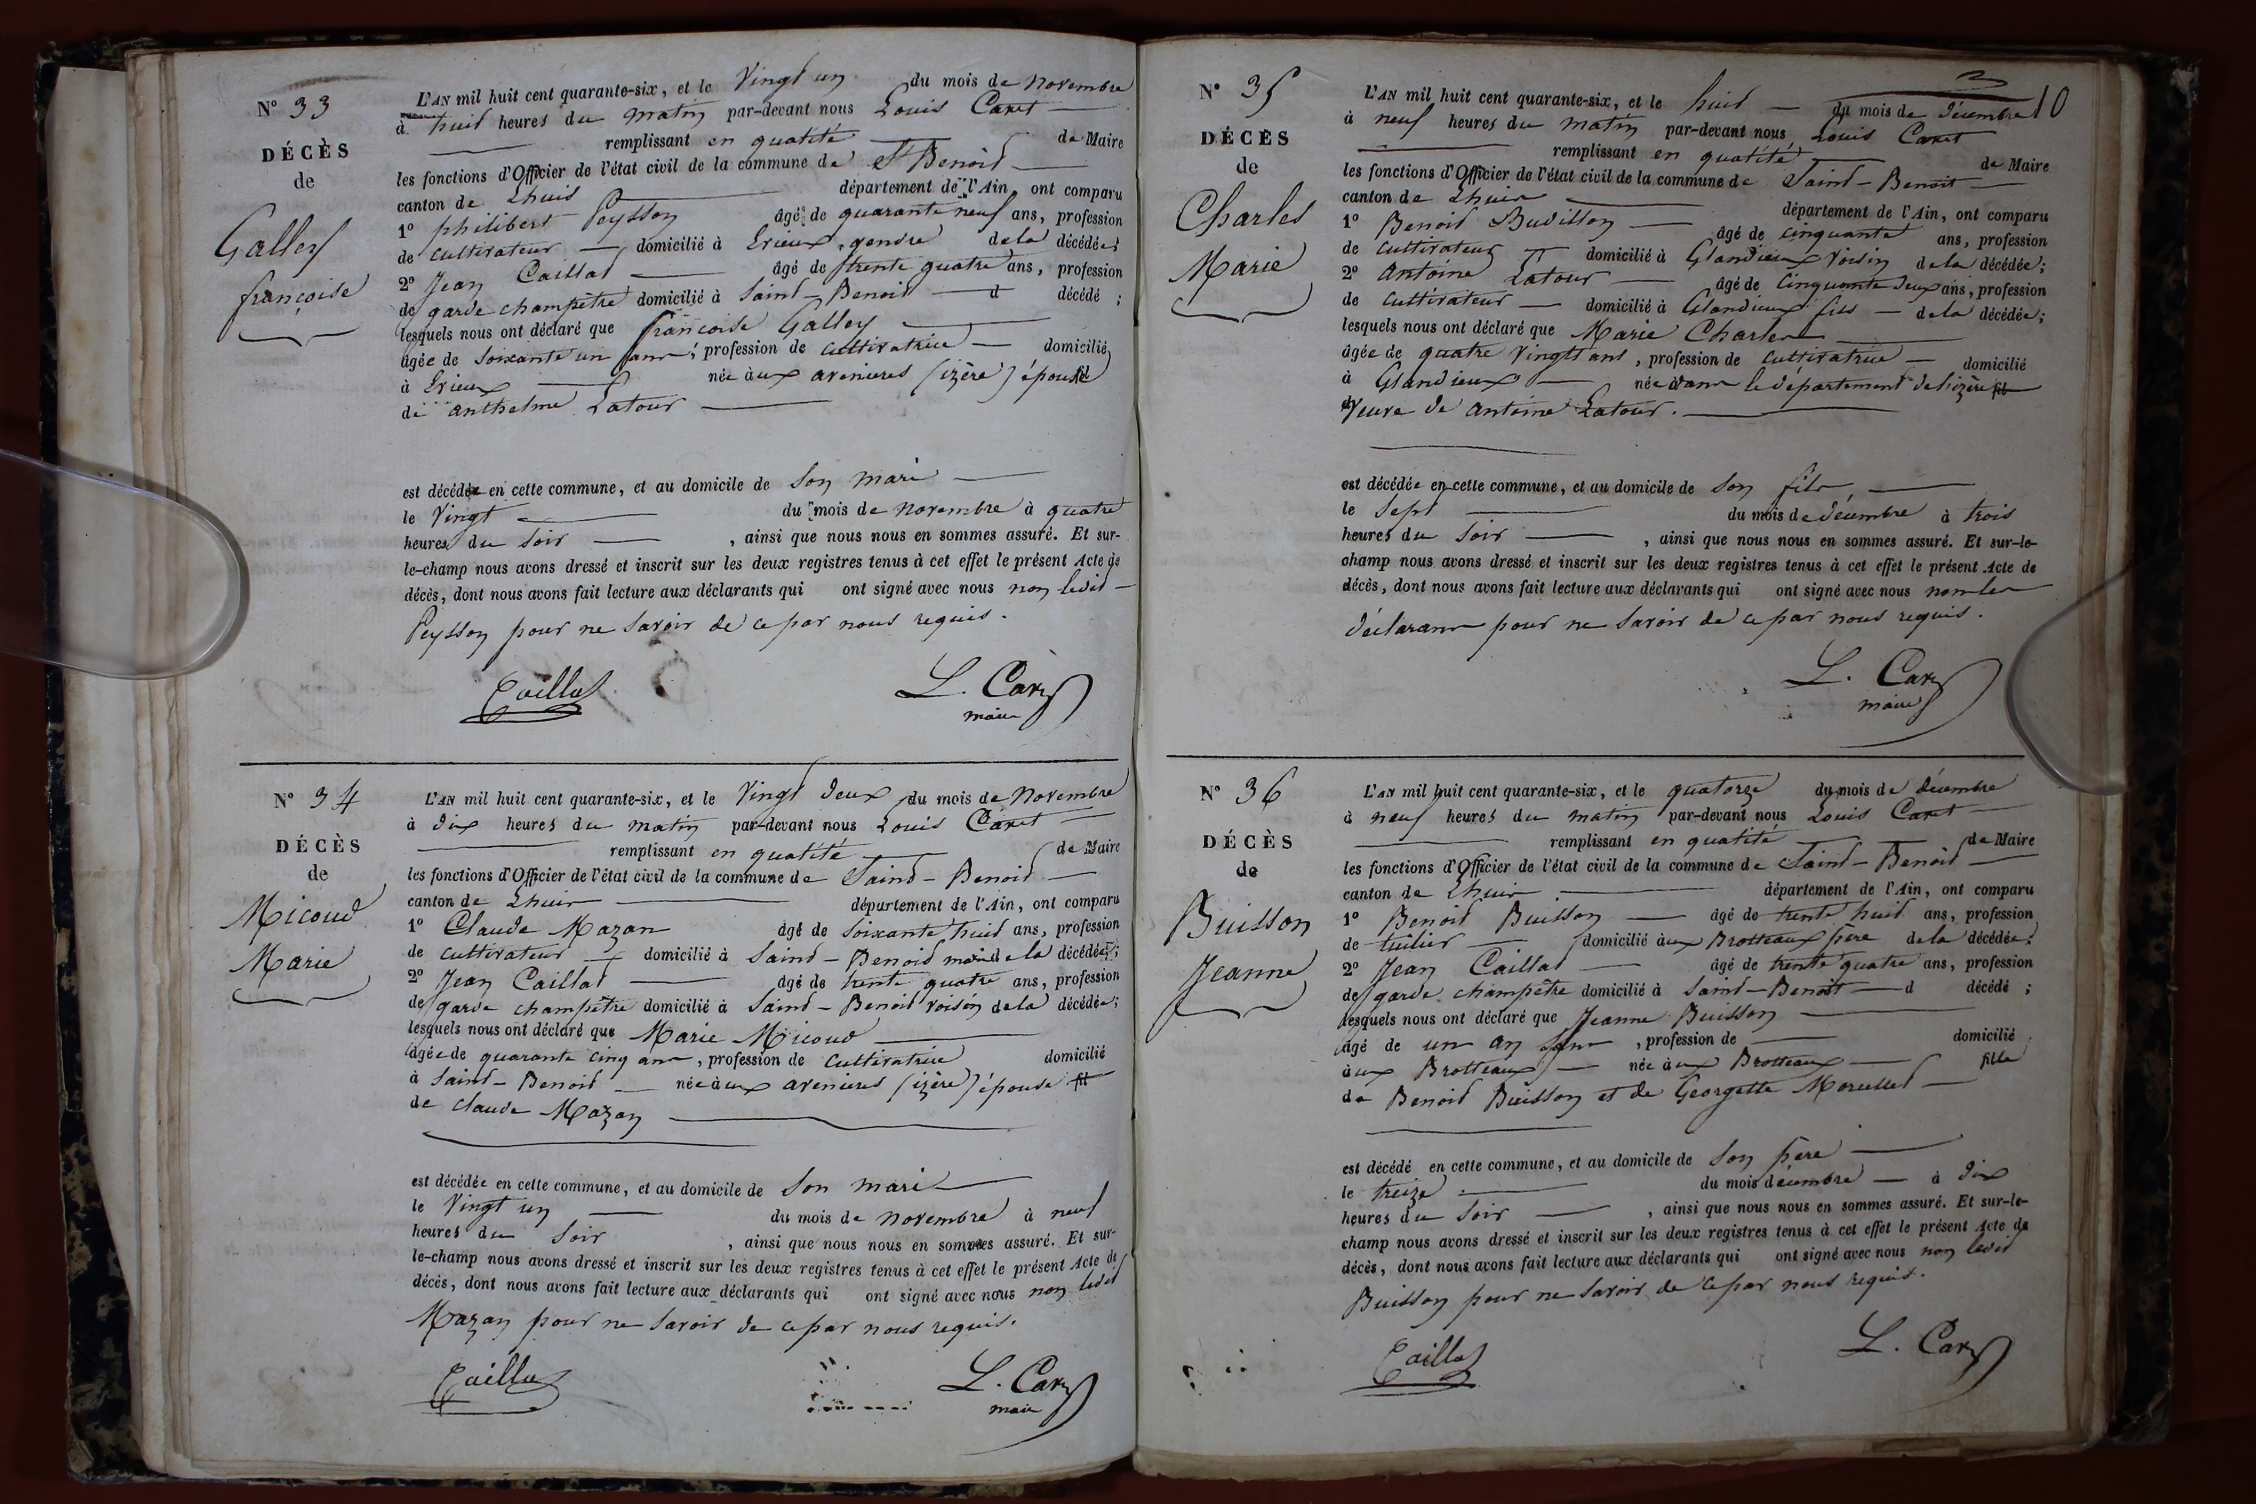 N° 33
DÉCÈS
de
Galley
françoise
L'AN mil huit cent quarante-six, et le Vingt un du mois de Novembre
à huit heures du matin par-devant nous Louis Caret
remplissant en qualité de Maire
les fonctions d'Officier de l'état civil de la commune de St Benoit
canton de Lhuis département de l'Ain, ont comparu
1° philibert Peysson âgé de quarante neuf ans, profession
de cultivateur domicilié à Erieux, gendre de la décédée;
2° Jean Caillat âgé de trente quatre ans, profession
de garde champêtre domicilié à Saint-Benoit d décédé ;
lesquels nous ont déclaré que françoise Galley
âgée de soixante un ans, profession de cultivatrice domicilié
à Erieux née aux avenieres (izère) épouse
de anthelme Latour
est décédée en cette commune, et au domicile de son mari
le Vingt du mois de novembre à quatre
heures du soir , ainsi que nous nous en sommes assuré. Et sur-
le-champ nous avons dressé et inscrit sur les deux registres tenus à cet effet le présent Acte de
décès, dont nous avons fait lecture aux déclarants qui ont signé avec nous non ledit
Peysson pour ne savoir de ce par nous requis.
Caillat L. Caret
maire
N° 34
DÉCÈS
de
Micoud
Marie
L'AN mil huit cent quarante-six, et le Vingt deux du mois de Novembre
à dix heures du matin par-devant nous Louis Caret
remplissant en qualité de Maire
les fonctions d'Officier de l'état civil de la commune de Saint-Benoit
canton de Lhuis département de l'Ain, ont comparu
1° Claude Mazan âgé de soixante huit ans, profession
de cultivateur domicilié à Saint-Benoit mari de la décédée;
2° Jean Caillat âgé de trente quatre ans, profession
de garde champêtre domicilié à Saint-Benoit voisin de la décédée;
lesquels nous ont déclaré que Marie Micoud
âgée de quarante cinq ans, profession de cultivatrice domicilié
à Saint-Benoit née aux avenieres (izère) épouse fil
de claude Mazan
est décédée en cette commune, et au domicile de son mari
le Vingt un du mois de novembre à neuf
heures du soir , ainsi que nous nous en sommes assuré. Et sur-
le-champ nous avons dressé et inscrit sur les deux registres tenus à cet effet le présent Acte de
décès, dont nous avons fait lecture aux déclarants qui ont signé avec nous non ledit
Mazan pour ne savoir de ce par nous requis.
Caillat L. Caret
maire
10
N° 35
DÉCÈS
de
Charles
Marie
L'AN mil huit cent quarante-six, et le huit du mois de décembre
à neuf heures du matin par-devant nous Louis Caret
remplissant en qualité de Maire
les fonctions d'Officier de l'état civil de la commune de Saint-Benoit
canton de Lhuis département de l'Ain, ont comparu
1° Benoit Buvillon âgé de cinquante ans, profession
de cultivateur domicilié à Glandieux voisin de la décédée;
2° antoine Latour âgé de cinquante deux ans, profession
de cultivateur domicilié à Glandieux fils de la décédée;
lesquels nous ont déclaré que Marie Charles
âgée de quatre vingts ans, profession de cultivatrice domicilié
à Glandieux née dans le département de l'izère fil
Veuve de antoine Latour.
est décédée en cette commune, et au domicile de son fils
le sept du mois de décembre à trois
heures du soir , ainsi que nous nous en sommes assuré. Et sur-le-
champ nous avons dressé et inscrit sur les deux registres tenus à cet effet le présent Acte de
décès, dont nous avons fait lecture aux déclarants qui ont signé avec nous non les
déclarans pour ne savoir de ce par nous requis.
L. Caret
maire
N° 36
DÉCÈS
de
Buisson
Jeanne
L'AN mil huit cent quarante-six, et le quatorze du mois de décembre
à neuf heures du matin par-devant nous Louis Caret
remplissant en qualité de Maire
les fonctions d'Officier de l'état civil de la commune de Saint-Benoit
canton de Lhuis département de l'Ain, ont comparu
1° Benoit Buisson âgé de trente huit ans, profession
de tuilier domicilié aux Brotteaux père de la décédée;
2° Jean Caillat âgé de trente quatre ans, profession
de garde champêtre domicilié à Saint-Benoit d décédé ;
lesquels nous ont déclaré que Jeanne Buisson
âgé de un an , profession de domicilié
aux Brotteaux née aux Brotteaux fille
de Benoit Buisson et de Georgette Morellet
est décédé en cette commune, et au domicile de son père
le treize du mois décembre à dix
heures du soir , ainsi que nous nous en sommes assuré. Et sur-le-
champ nous avons dressé et inscrit sur les deux registres tenus à cet effet le présent Acte de
décès, dont nous avons fait lecture aux déclarants qui ont signé avec nous non ledit
Buisson pour ne savoir de ce par nous requis.
Caillat L. Caret